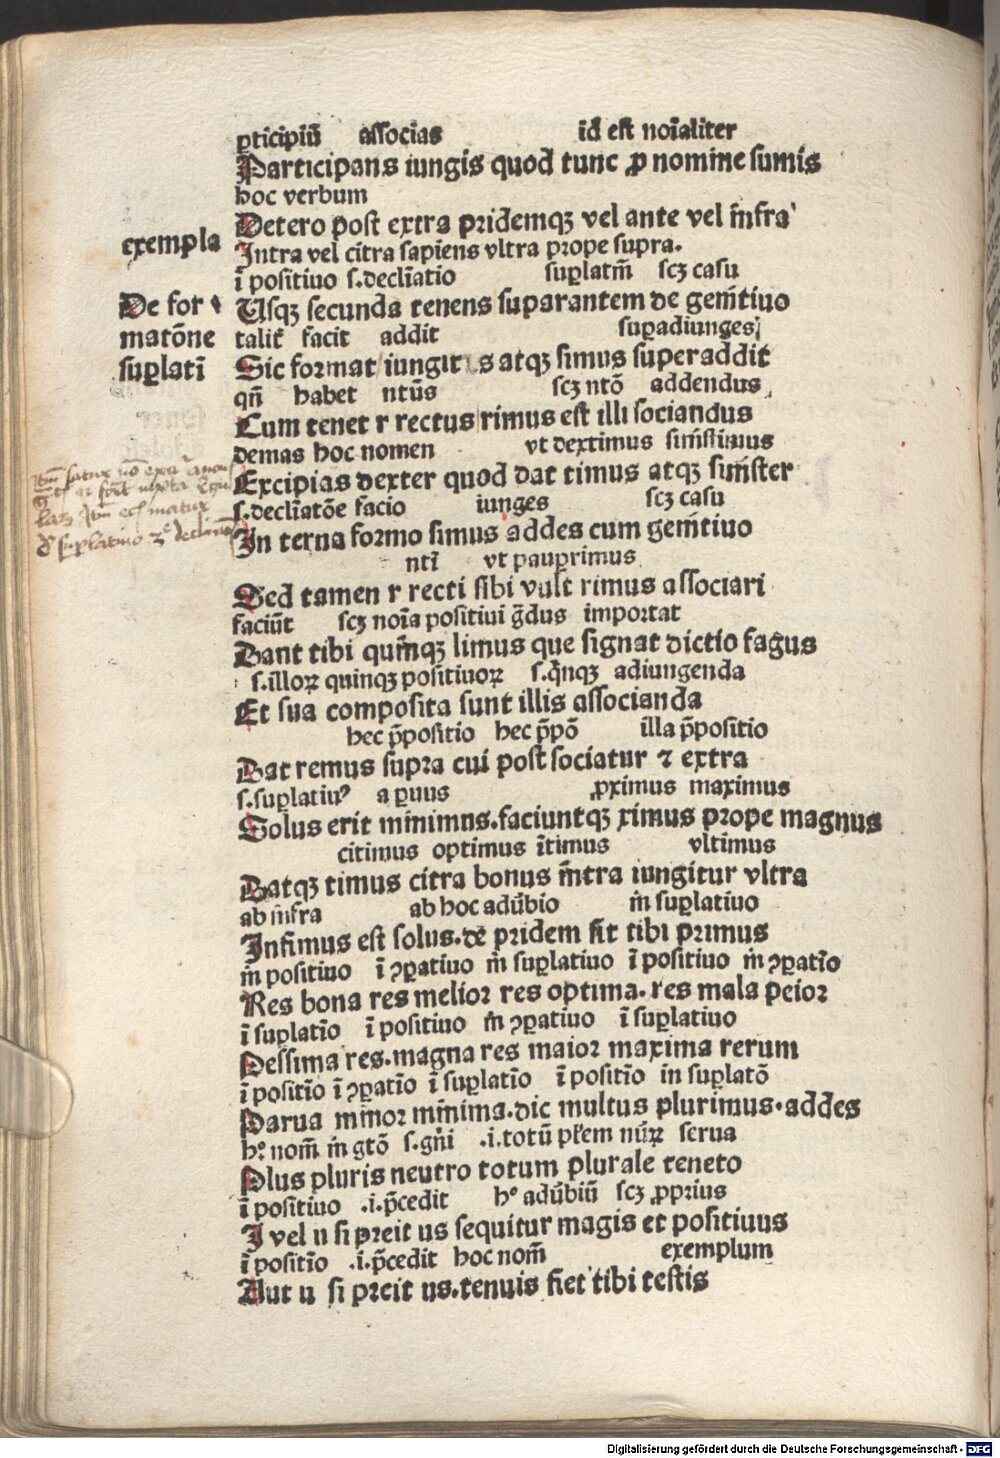 ꝑticipiū associas id est noīaliter
Participans iungis quod tunc ꝓ nomine sumis
hoc verbum
Detero post extra pridemqꝫ vel ante vel infra
exempla
Intra vel citra sapiens vltra prope supra.
ī positiuo s.declīatio suꝑlatm̄ scꝫ casu
De for
matōne
suꝑlati
Usqꝫ secunda tenens suparantem de gen̄tiuo
talit̄ facit addit suꝑadiunges
Sic format iungit s atqꝫ simus superaddit
qn̄ habet ntūs scꝫ ntō addendus
Cum tenet r rectus rimus est illi sociandus
demas hoc nomen vt dextimus sinistimus
Excipias dexter quod dat timus atqꝫ sinister
s.declīatōe facio iunges scꝫ casu
In terna formo simus addes cum gen̄tiuo
ntī vt pauꝑrimus
Sed tamen r recti sibi vult rimus associari
faciūt scꝫ noīa positiui g̃dus importat
Dant tibi quinqꝫ limus que signat dictio fagus
s.illoꝝ quinqꝫ positiuoꝝ s.q̄nqꝫ adiungenda
Et sua composita sunt illis associanda
hec p̄positio hec p̄pō illa p̄positio
Dat remus supra cui post sociatur ⁊ extra
s.suꝑlatiuꝰ a ꝑuus ꝓximus maximus
Solus erit minimus.faciuntqꝫ ximus prope magnus
citimus optimus ītimus vltimus
Datqꝫ timus citra bonus intra iungitur vltra
ab infra ab hoc adūbio in suꝑlatiuo
Infimus est solus.de pridem fit tibi primus
in positiuo ī ꝯꝑatiuo in suꝑlatiuo ī positiuo in ꝯꝑatīo
Res bona res melior res optima. res mala peior
ī suꝑlatīo ī positiuo in ꝯꝑatiuo ī suꝑlatiuo
Pessima res.magna res maior maxima rerum
ī positīo ī ꝯꝑatīo ī suꝑlatīo ī positīo in suꝑlatō
Parua minor minima.dic multus plurimus.addes
h.º nom̄ in gtō s.gn̄i .i.totū pl̄em nūꝝ serua
Plus pluris neutro totum plurale teneto
ī positiuo .i.p̄cedit hº adūbiū scꝫ ꝓprius
I vel u si preit us sequitur magis et positiuus
ī positīo .i.p̄cedit hoc nom̄ exemplum
Aut u si preit us.tenuis fiet tibi testis
Digitalisierung gefördert durch die Deutsche Forschungsgemeinschaft - DFG